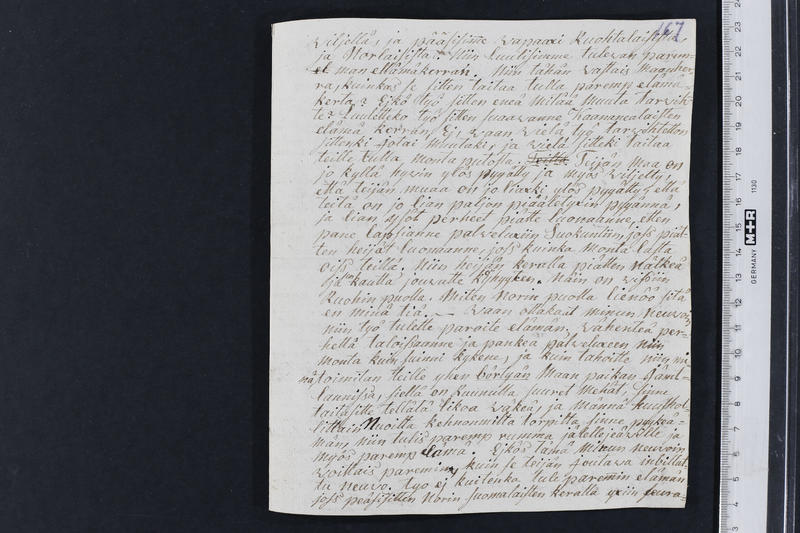 167
viljellä, ja pääsisimme vapaaxi Ruohtalaisista,
ja Norlaisista. Niin luulisimme tulevan parem-
man elämäkerran. Niin tähän vastais Maanher-
ra, kuinkas se sitten taitaa tulla paremp elämä-
kerta? Eikö työ sitten eneä mitää muuta tarvih-
te? Luuletteko työ sitten saavanne Kaanaanealaisten
elämä kerran. Ej, vaan vielä työ tarvihtetten
sittenki jotai muutaki, ja vielä sitteki taitaa
teille tulla monta pulosta. Teijän maa on
jo kyllä hyvin ylös pygätty ja myös viljelty,
että teijän muaa on jo liiaxi ylös pygätty, että
teitä on jo lian paljon piäälletyxin pygännä,
ja lian isot perheet piätte luonanne, etten
pane lapsianne palveluxiin Suokuntan, joss piät-
ten heijät luonanne, joss kuinka monta lasta
oiss teillä. Niin heijän keralla piätten nälkeä
ja kautta jouvutte köyhyyten. Näin on vissiin
Ruohin puolla. Miten Norin puolla lienöö sitä
en minä tiä. — Vaan ottakaat minun neuvoin
niin työ tulette paroile elämän. Vähenteä per-
hettä taloissaanne ja pankeä palveluxeen niin
monta kuin suinni kykene, ja kuin tahoitte niin mi-
nä toimitan teille yhen börlyän Maan paikan Jämt-
lannissa, siellä on Ruunulla suuret mehät. Sinne
taitasitte tellätä likoa väkeä, ja männä kuusstol-
littain Nuoilta kehnommilta torpilta sinne pygeä-
män, niin tulis paremp rumma jälellejeäville ja
myös paremp elämä. Eikös tämä Minun neuvoin
voittais paremin, kuin se teijän joutava inbillat-
tu neuvo. työ ej kuitenka tule paremin elämän
joss peäsisitten Norin suomalaisten keralla yxiin seura-